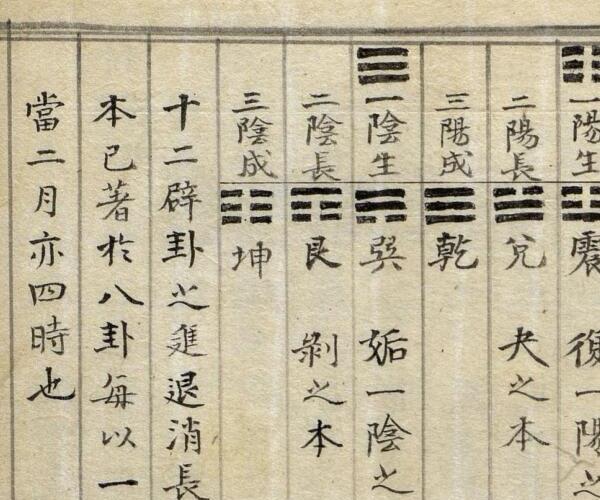 一陽生
震　復一陽之
二陽長
兌　夬之本
三陽成
乾
一陰生
巽　姤一陰之
二陰長
艮　剝之本
三陰成
坤
十二辟卦之進退消長
本已著於八卦每以一
當二月亦四時也